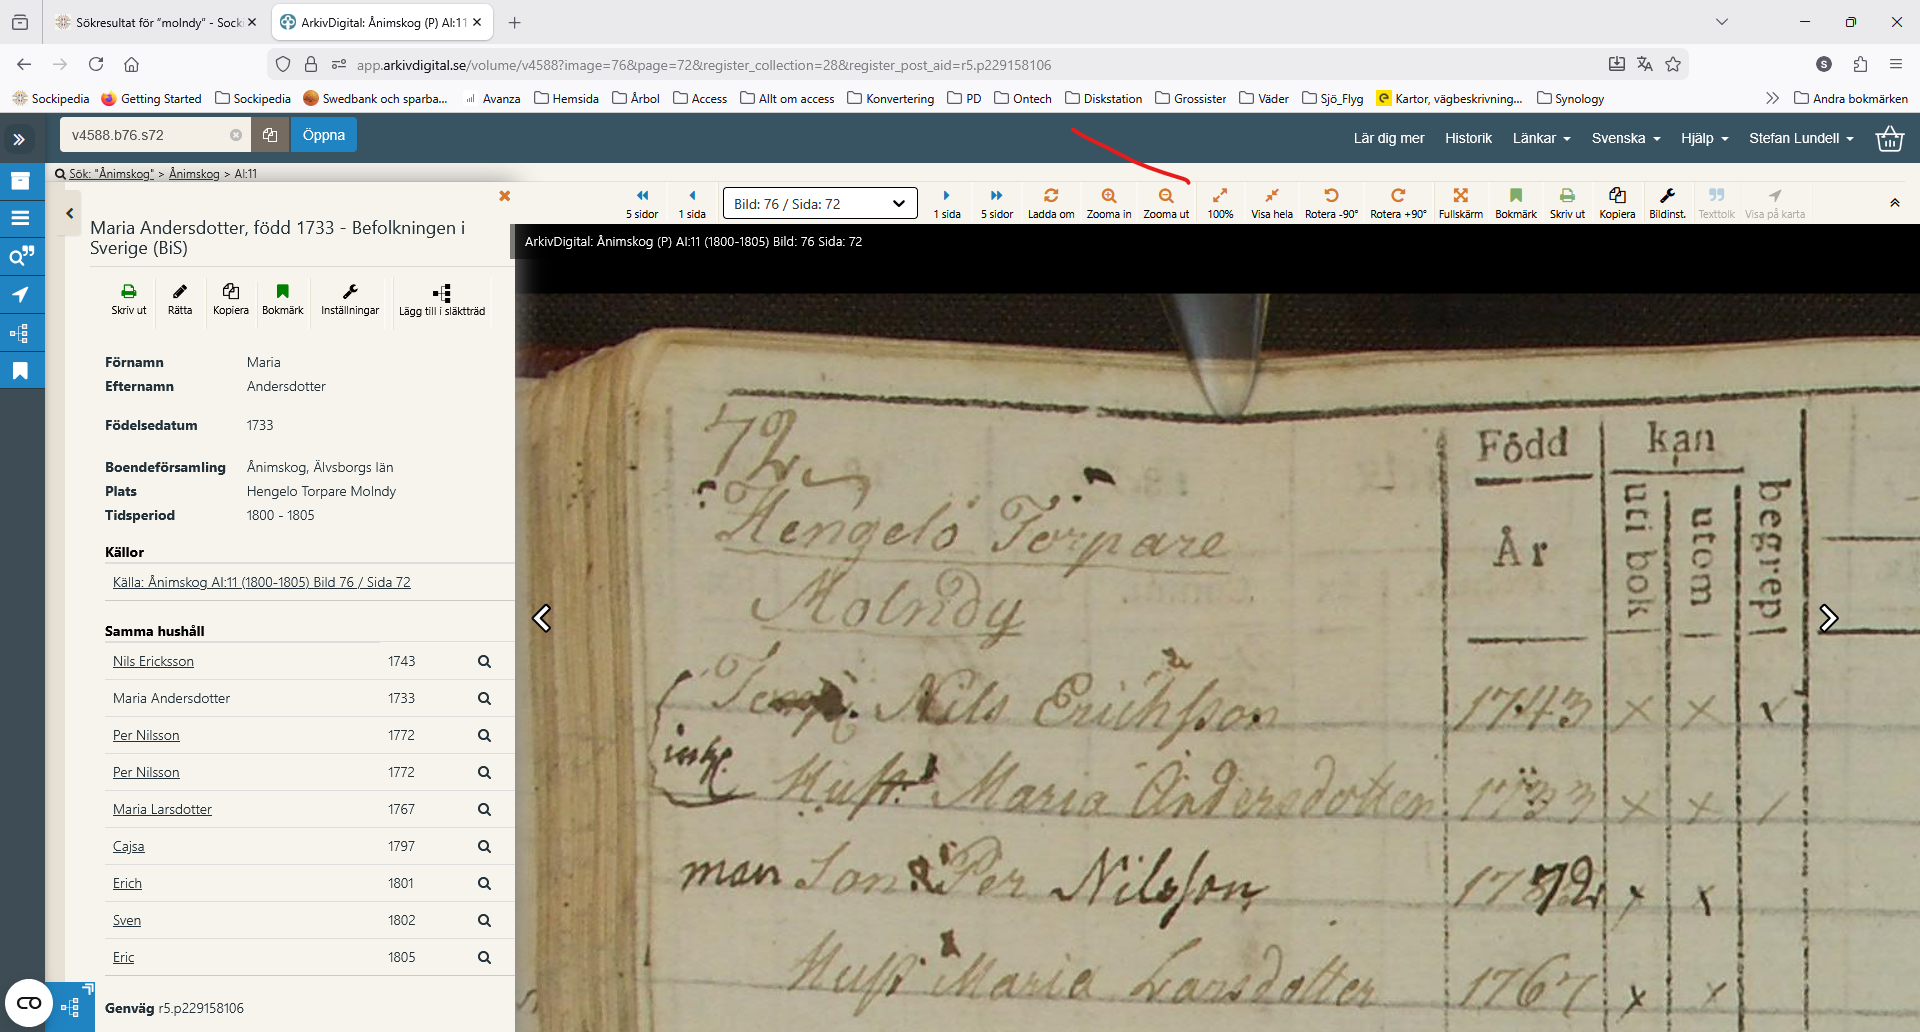 Sökresultat för "molndy" - Socki
ArkivDigital: Ånimskog (P) AI:11
app.arkivdigital.se/volume/v4588?image=76&page=72&register_collection=28&register_post_aid=r5.p229158106
S
Sockipedia Getting Started Sockipedia Swedbank och sparba... Avanza Hemsida Årbol Access Allt om access Konvertering PD Ontech Diskstation Grossister Väder Sjö_Flyg Kartor, vägbeskrivning... Synology Andra bokmärken
v4588.b76.s72 Öppna
Lär dig mer Historik Länkar Svenska Hjälp Stefan Lundell
Sök: "Ånimskog" > Ånimskog > AI:11
5 sidor 1 sida Bild: 76 / Sida: 72 1 sida 5 sidor Ladda om Zooma in Zooma ut 100% Visa hela Rotera -90° Rotera +90° Fullskärm Bokmärk Skriv ut Kopiera Bildinst. Texttolk Visa på karta
Maria Andersdotter, född 1733 - Befolkningen i
Sverige (BiS)
Skriv ut Rätta Kopiera Bokmärk Inställningar Lägg till i släktträd
Förnamn Maria
Efternamn Andersdotter
Födelsedatum 1733
Boendeförsamling Ånimskog, Älvsborgs län
Plats Hengelo Torpare Molndy
Tidsperiod 1800 - 1805
Källor
Källa: Ånimskog AI:11 (1800-1805) Bild 76 / Sida 72
Samma hushåll
Nils Ericksson 1743
Maria Andersdotter 1733
Per Nilsson 1772
Per Nilsson 1772
Maria Larsdotter 1767
Cajsa 1797
Erich 1801
Sven 1802
Eric 1805
Genväg r5.p229158106
ArkivDigital: Ånimskog (P) AI:11 (1800-1805) Bild: 76 Sida: 72
72
Född kan
År uti bok utom begrep
Hengelö Torpare
Molndy
Nils Erichsson 1743 x x
Hust. Maria Andersdotter 1733 x x
man Son Per Nilsson 1772 x x
Hust Maria Larsdotter 1767 x x